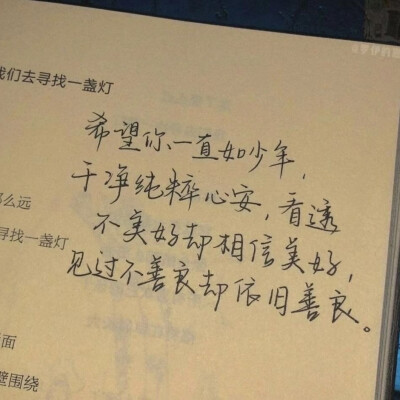 我们去寻找一盏灯
希望你一直如少年，
干净纯粹心安，看透
不美好却相信美好，
见过不善良却依旧善良。
那么远
寻找一盏灯
面
壁围绕